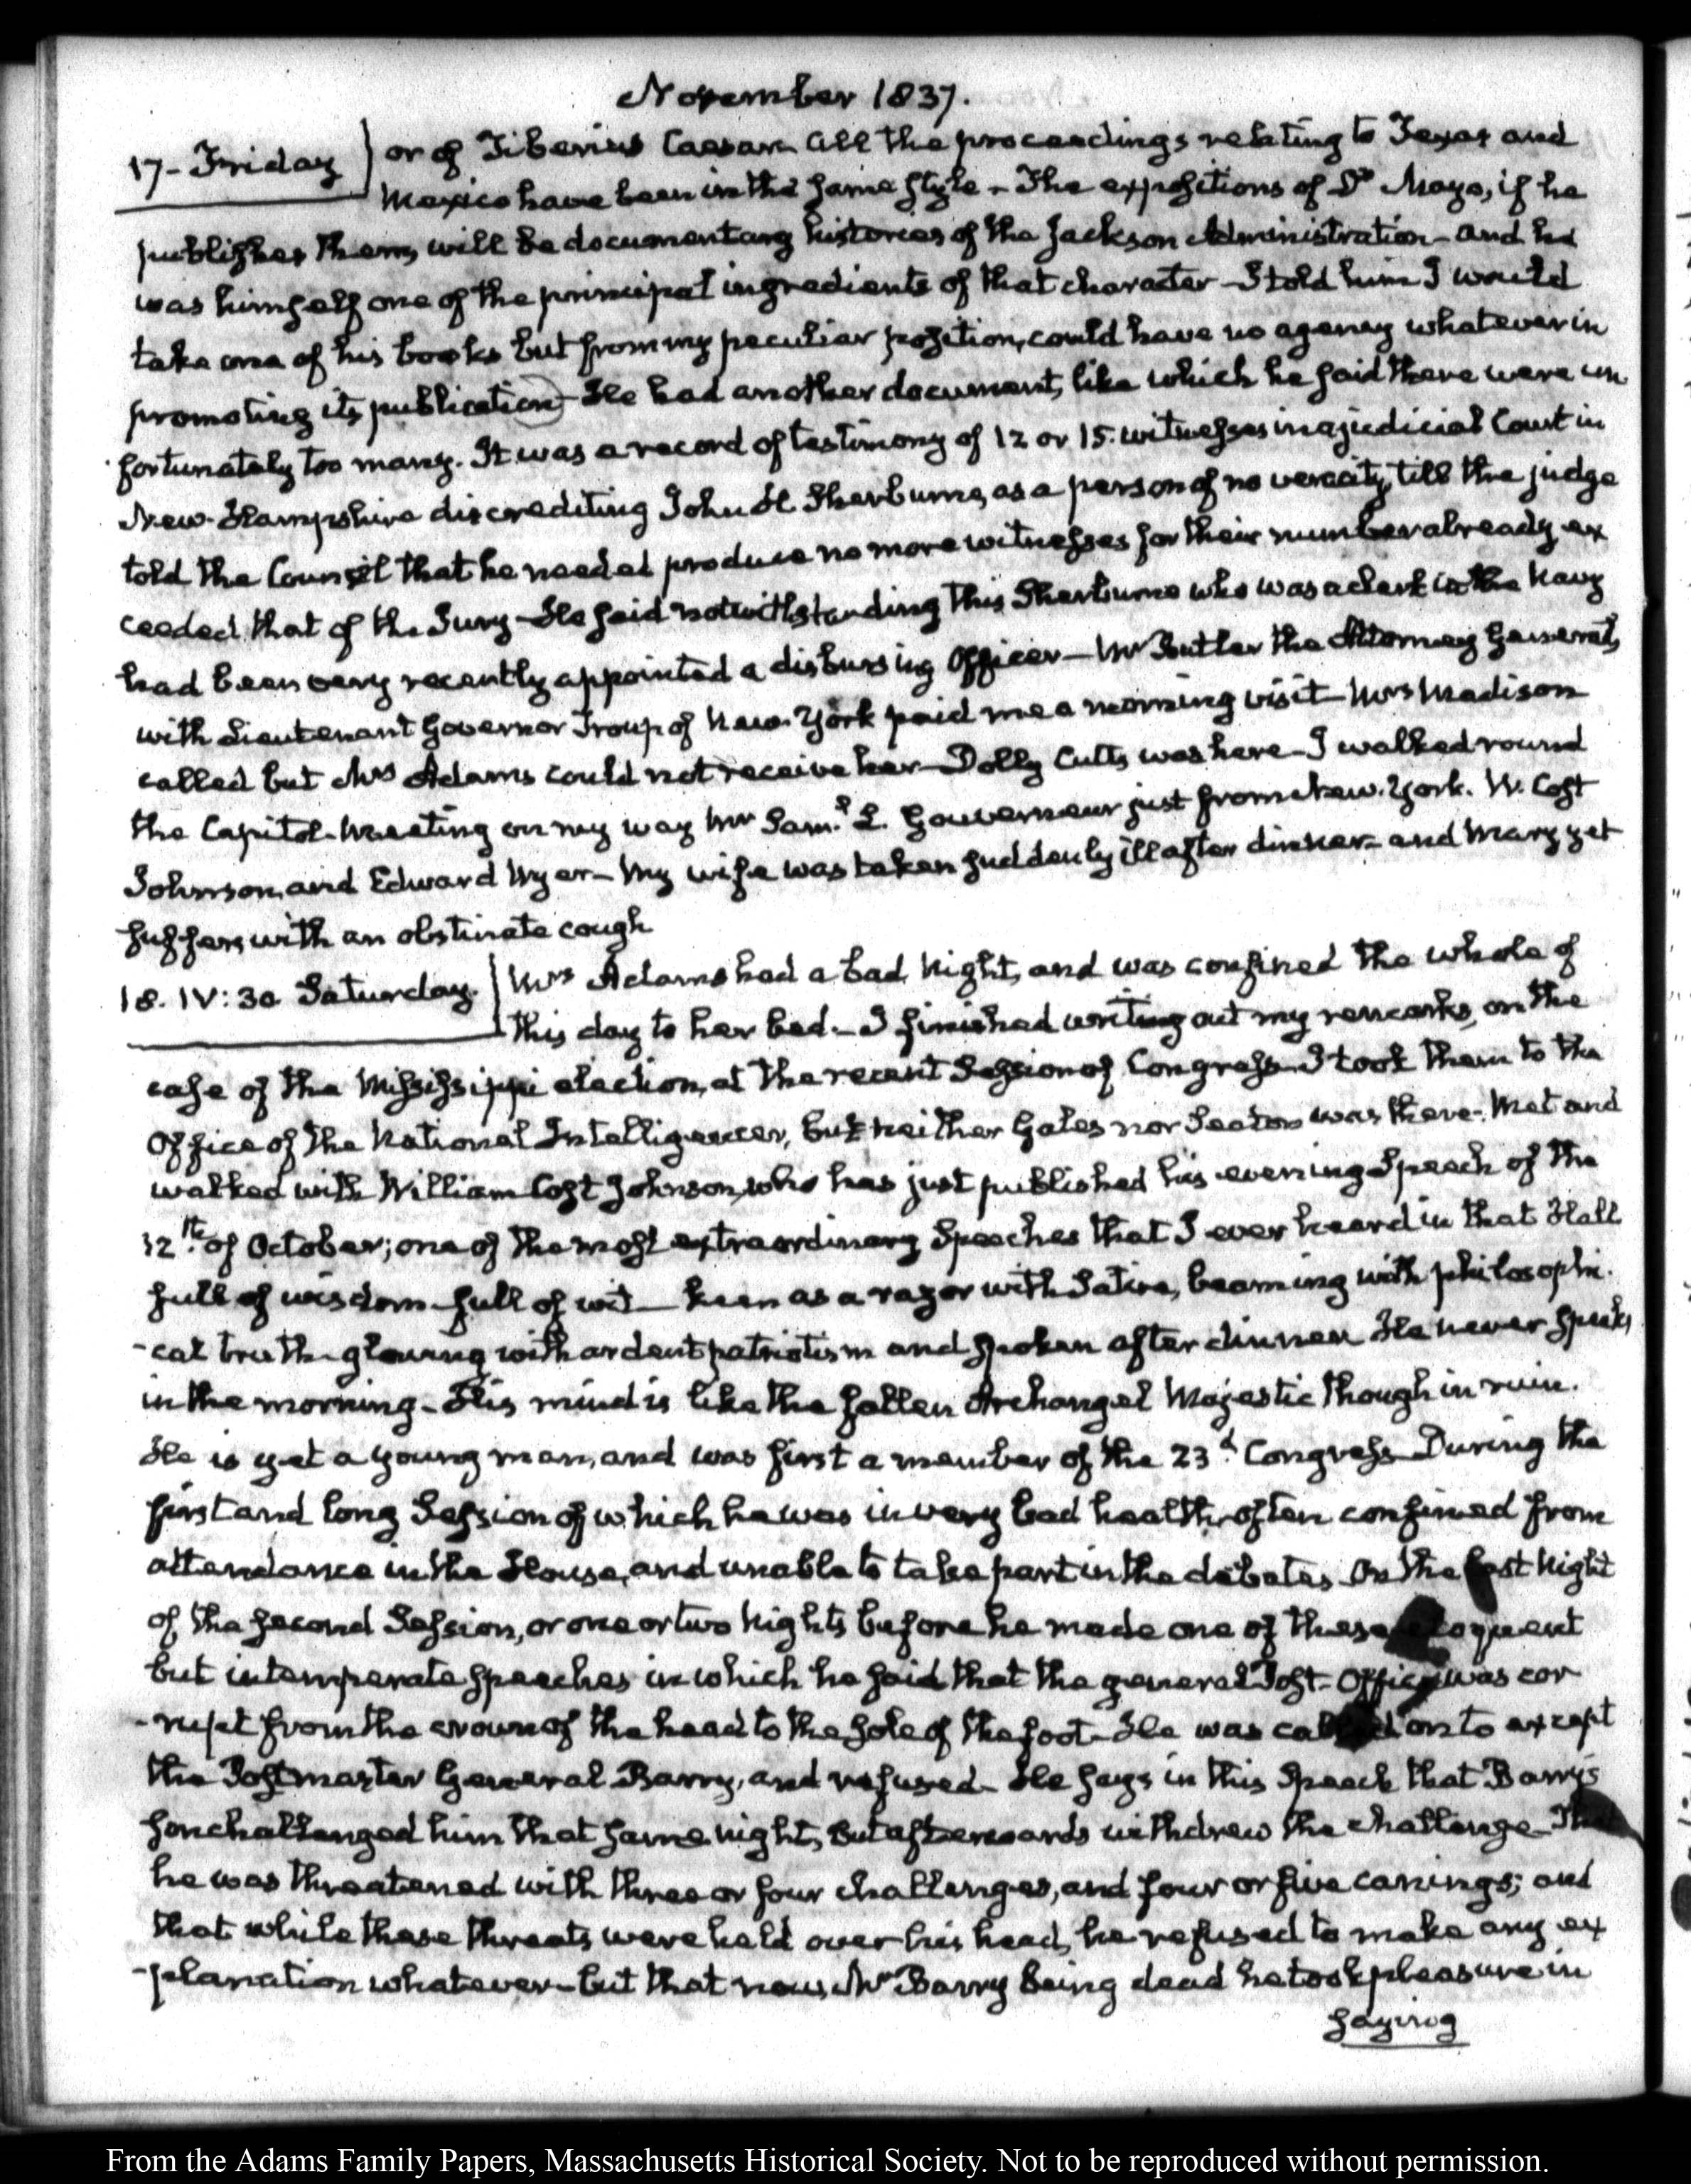 November 1837.
17 - Friday
or of Tiberius Caesar. All the proceedings relating to Texas and
Mexico have been in the same style - The expositions of Dr Mayo, if he
publishes them, will be documentary histories of the Jackson Administration - and he
was himself one of the principal ingredients of that character - I told him I would
take one of his books but from my peculiar position, could have no agency whatever in
promoting its publication - He had another document, like which he said there were un
fortunately too many. It was a record of testimony of 12 or 15. witnesses in a judicial Court in
New-Hampshire discrediting John H Sherburne, as a person of no veracity, till the judge
told the Counsel that he needed produce no more witnesses for their number already ex
ceeded that of the Jury - He said notwithstanding this Sherburne who was a clerk in the Navy
had been very recently appointed a disbursing Officer - Mr Butler the Attorney General,
with Lieutenant Governor Troup of New-York paid me a morning visit - Mrs Madison
called but Mrs Adams could not receive her - Dolly Cutts was here - I walked round
the Capitol - Meeting on my way Mr Saml. L. Gouverneur just from New-York. W. Cost
Johnson, and Edward Wyer - My wife was taken suddenly ill after dinner - and Mary yet
suffers with an obstinate cough
18. IV: 30 Saturday.
Mrs Adams had a bad Night, and was confined the whole of
this day to her bed - I finished writing out my remarks, on the
case of the Mississippi election, at the recent Session of Congress - I took them to the
Office of the National Intelligencer, but neither Gales nor Seaton was there - Met and
walked with William Cost Johnson, who has just published his evening Speech of the
12th. of October; one of the most extraordinary Speeches that I ever heard in that Hall
full of wisdom - full of wit - keen as a razor with Satire, beaming with philosophi-
-cal truth - glowing with ardent patriotism and spoken after dinner He never speaks
in the morning - His mind is like the fallen Archangel Majestic though in ruin.
He is yet a young man, and was first a member of the 23d. Congress During the
first and long Session of which he was in very bad health, often confined from
attendance in the House, and unable to take part in the debates On the last Night
of the second Session, or one or two Nights before he made one of these eloquent
but intemperate speeches in which he said that the general Post-Office was cor
-rupt from the crown of the head to the sole of the foot - He was called on to except
the Postmaster General Barry, and refused - He says in this Speech that Barry's
son challenged him that same night, but afterwards withdrew the challenge - That
he was threatened with three or four challenges, and four or five canings; and
that while these threats were held over his head, he refused to make any ex
-planation whatever - but that now, Mr Barry being dead he took pleasure in
saying
From the Adams Family Papers, Massachusetts Historical Society. Not to be reproduced without permission.